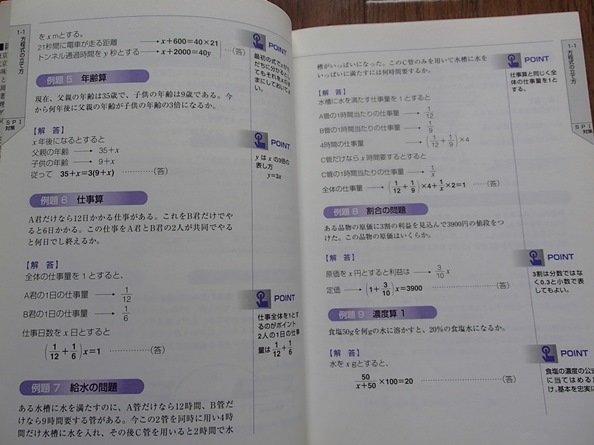 を x mとする。
21秒間に電車が走る距離 → x＋600＝40×21
トンネル通過時間を y 秒とする → x＋2000＝40y ………(答)
POINT
最初の式で
例題 5 年齢算
現在、父親の年齢は35歳で、子供の年齢は9歳である。今
から何年後に父親の年齢が子供の年齢の3倍になるか。
【解 答】
x 年後になるとすると
父親の年齢 → 35＋x
子供の年齢 → 9＋x
従って 35＋x＝3(9＋x) ………(答)
POINT
y は x の3倍の
表し方
y＝3x
例題 6 仕事算
A君だけなら12日かかる仕事がある。これをB君だけでや
ると6日かかる。この仕事をA君とB君の2人が共同でやる
と何日でし終えるか。
【解 答】
全体の仕事量を1とすると、
A君の1日の仕事量 → 1/12
B君の1日の仕事量 → 1/6
仕事日数を x 日とすると
(1/12＋1/6)x＝1 ………(答)
POINT
仕事全体を1とす
るのがポイント
2人の1日の仕事
量は1/12＋1/6
例題 7 給水の問題
ある水槽に水を満たすのに、A管だけなら12時間、B管だ
けなら9時間要する管がある。今この2管を同時に用い4時
間だけ水槽に水を入れ、その後C管を用いると2時間で水
1-1
方程式の立て方
SPI
対策
槽がいっぱいになった。このC管のみを用いて水槽に水を
いっぱいに満たすには何時間要するか。
【解 答】
水槽に水を満たす仕事量を1とすると
A管の1時間当たりの仕事量 → 1/12
B管の1時間当たりの仕事量 → 1/9
4時間の仕事量 → (1/12＋1/9)×4
C管だけなら x 時間要するとすると
C管の1時間当たりの仕事量 → 1/x
全体の仕事量 → (1/12＋1/9)×4＋1/x×2＝1 ………(答)
POINT
仕事算と同じく全
体の仕事量を1と
する。
例題 8 割合の問題
ある品物の原価に3割の利益を見込んで3900円の値段をつ
けた。この品物の原価はいくらか。
【解 答】
原価を x 円とすると利益は → 3/10 x
定価 → (1＋3/10)x＝3900 ………(答)
POINT
3割は分数ではな
く0.3と小数で表
してもよい。
例題 9 濃度算 1
食塩50gを何gの水に溶かすと、20%の食塩水になるか。
【解 答】
水を x gとすると、
50/x＋50×100＝20 ………(答)
POINT
食塩の濃度の公
に当てはめるだ
け,基本を忠実に
1-1
方程式の立て方
SPI
対策